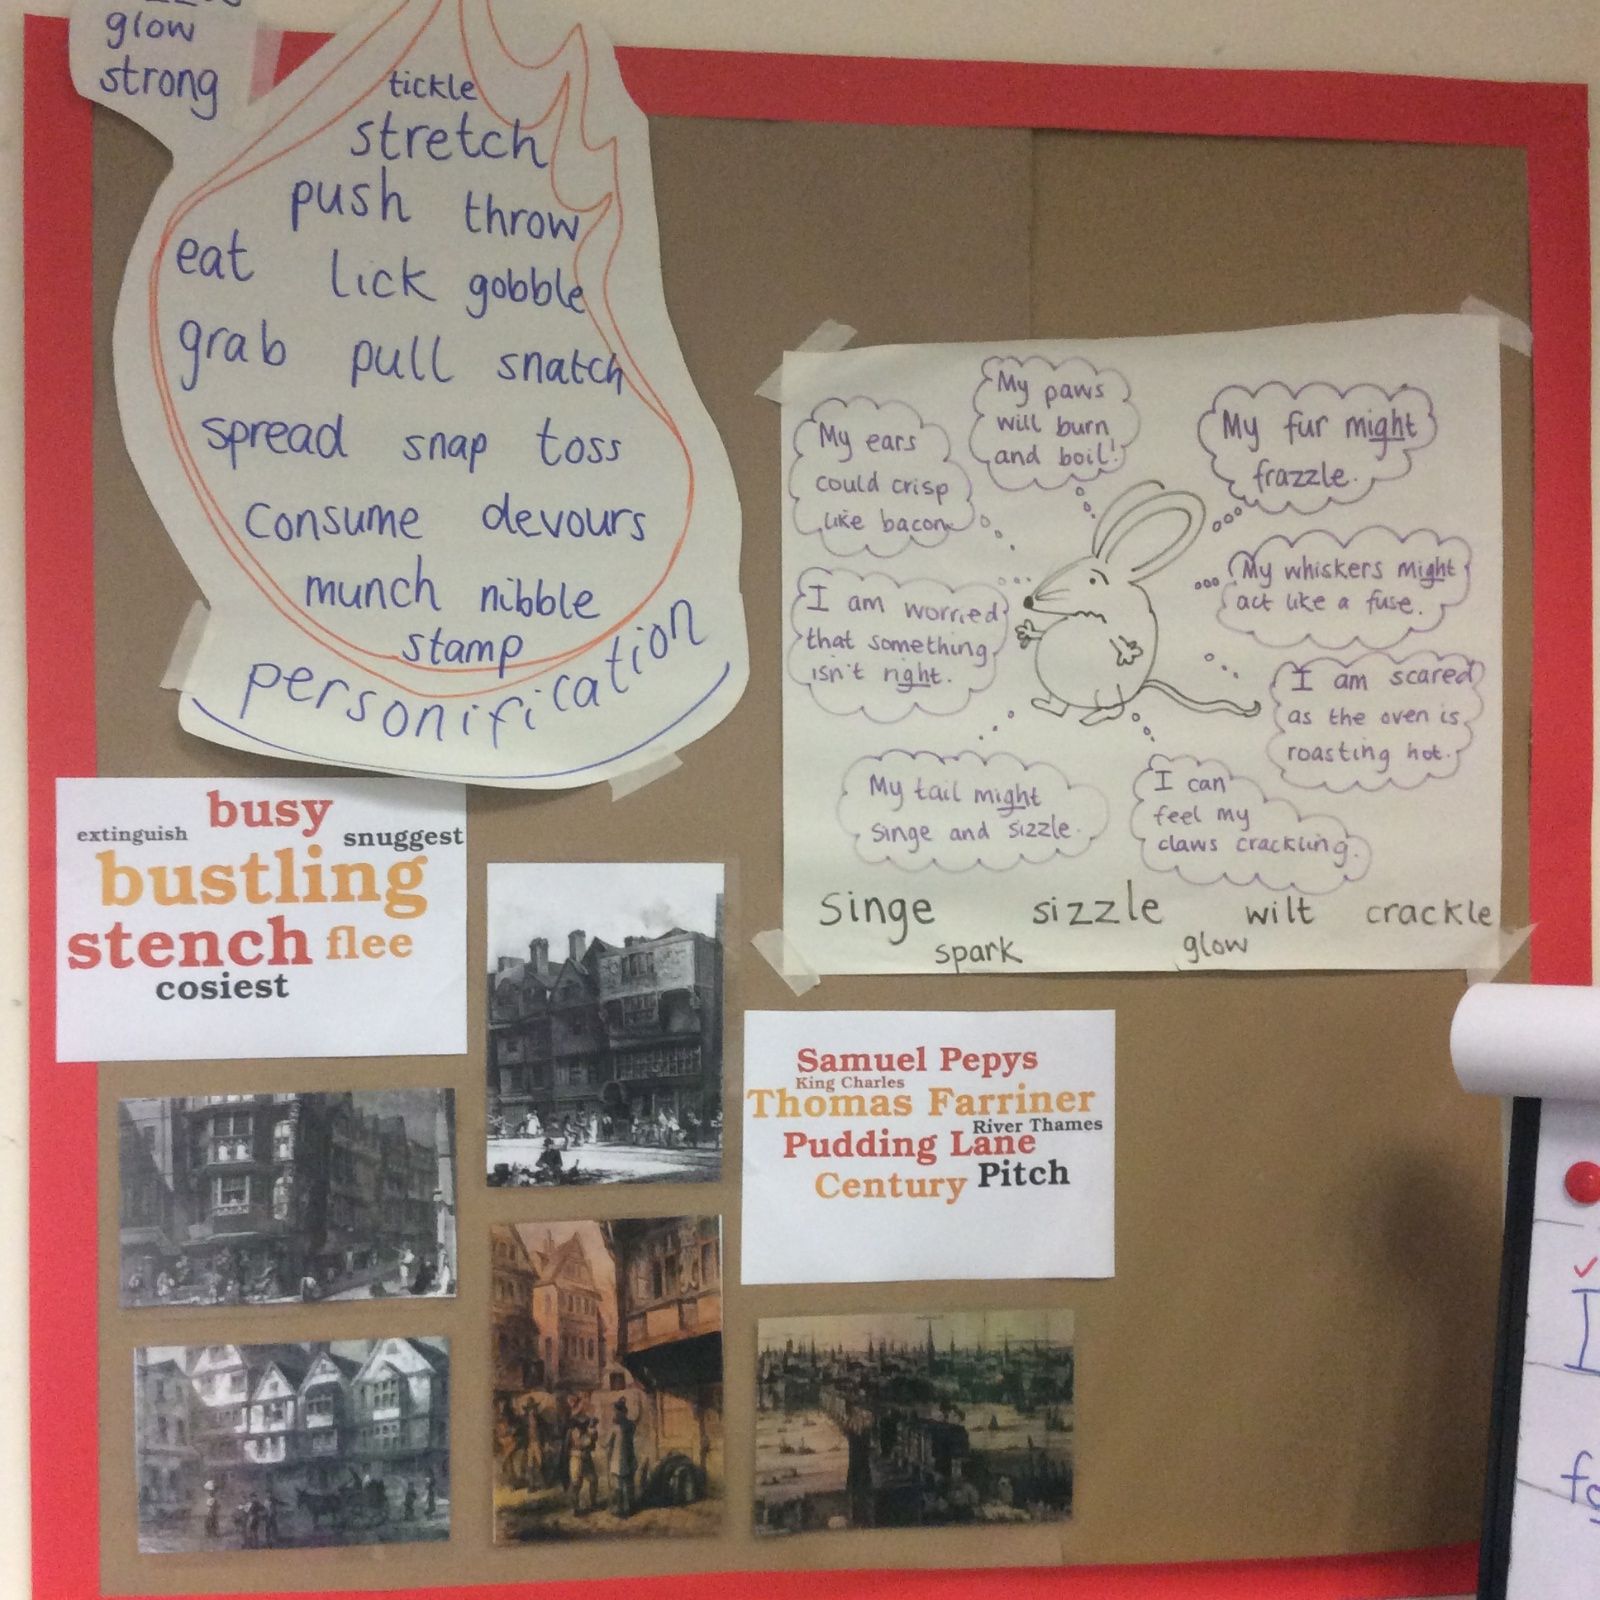 glow
strong
tickle
stretch
push throw
eat lick gobble
grab pull snatch
spread snap toss
consume devours
munch nibble
stamp
personification
My paws
will burn
and boil!
My ears
could crisp
like bacon
My fur might
frazzle.
I am worried
that something
isn't right.
My whiskers might
act like a fuse.
I am scared
as the oven is
roasting hot.
My tail might
singe and sizzle.
I can
feel my
claws crackling.
singe sizzle wilt crackle
spark glow
busy
extinguish snuggest
bustling
stench flee
cosiest
Samuel Pepys
King Charles
Thomas Farriner
River Thames
Pudding Lane
Century Pitch
I